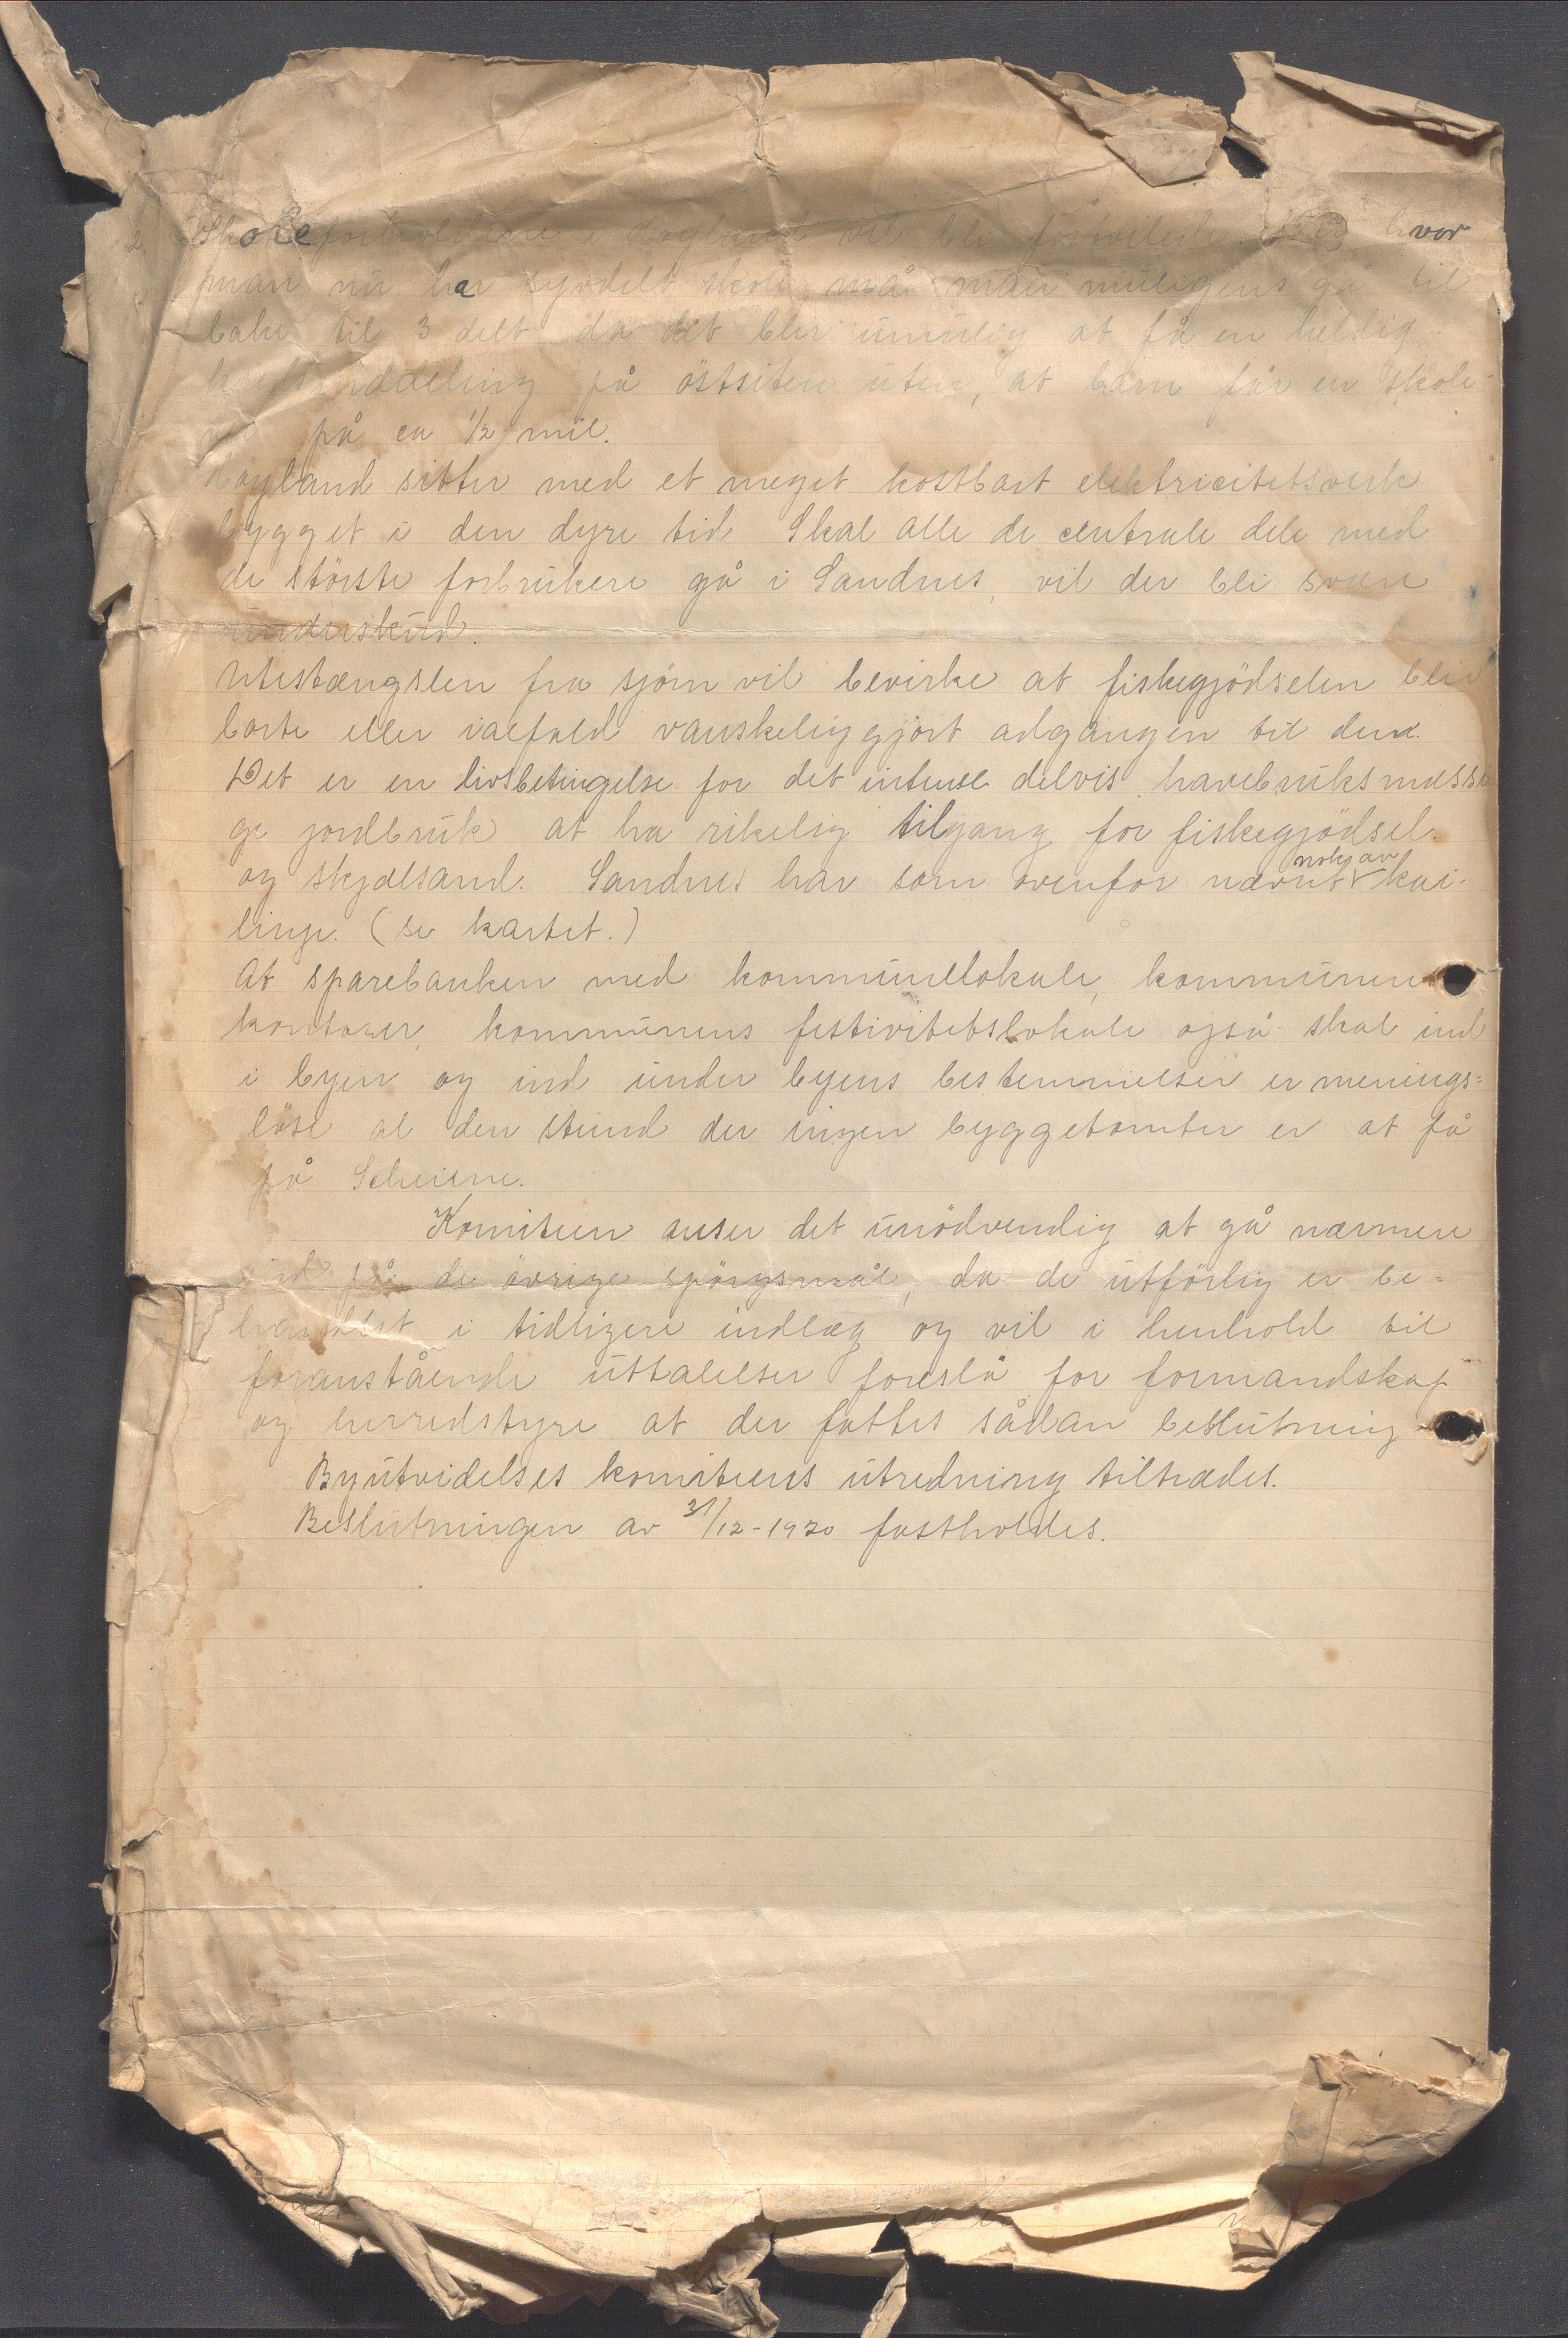 2. Skoleforholdene i Høyland vil bli fortvilede. hvor
man nu har syvdelt skole må man muligens gå til
bake til 3 delt da det blir umulig at få en heldig
inddeling på östsiten uten, at barn får en skole-
vei på ca 1/2 mil.
Höyland sitter med et meget kostbart elektricitetsverk
bygget i den dyre tid Skal alle de centrale dele med
de störste forbrukere gå i Sandnes, vil der bli svære
underskud.
Utestængslen fra sjøen vil bevirke at fiskegjödselen blir
borte eller ialfald vanskeliggjort adgangen til den.
Det er en livsbetingelse for det intense delvis havebruksmæssi
ge jordbruk at ha rikelig tilgang for fiskegjödsel
og skjælsand. Sandnes har som ovenfor nævnt nok av kai-
linje. (se kartet.)
At sparebanken med kommunelokale, kommunens
kontorer, kommunens festivitetslokale også skal ind
i byen og ind under byens bestemmelser er menings=
löst al den stund der ingen byggetomter er at få
på Scheiene.
Komiteen anser det unödvendig at gå nærmere
ind på de övrige spörgsmål, da de utförlig er be=
handlet i tidligere indlæg og vil i henhold til
foranstående uttalelser foreslå for formandskap
og herredstyre at der fattes sådan beslutning
Byutvidelses komiteens utredning tiltrædes.
Beslutningen av 31/12-1920 fastholdes.